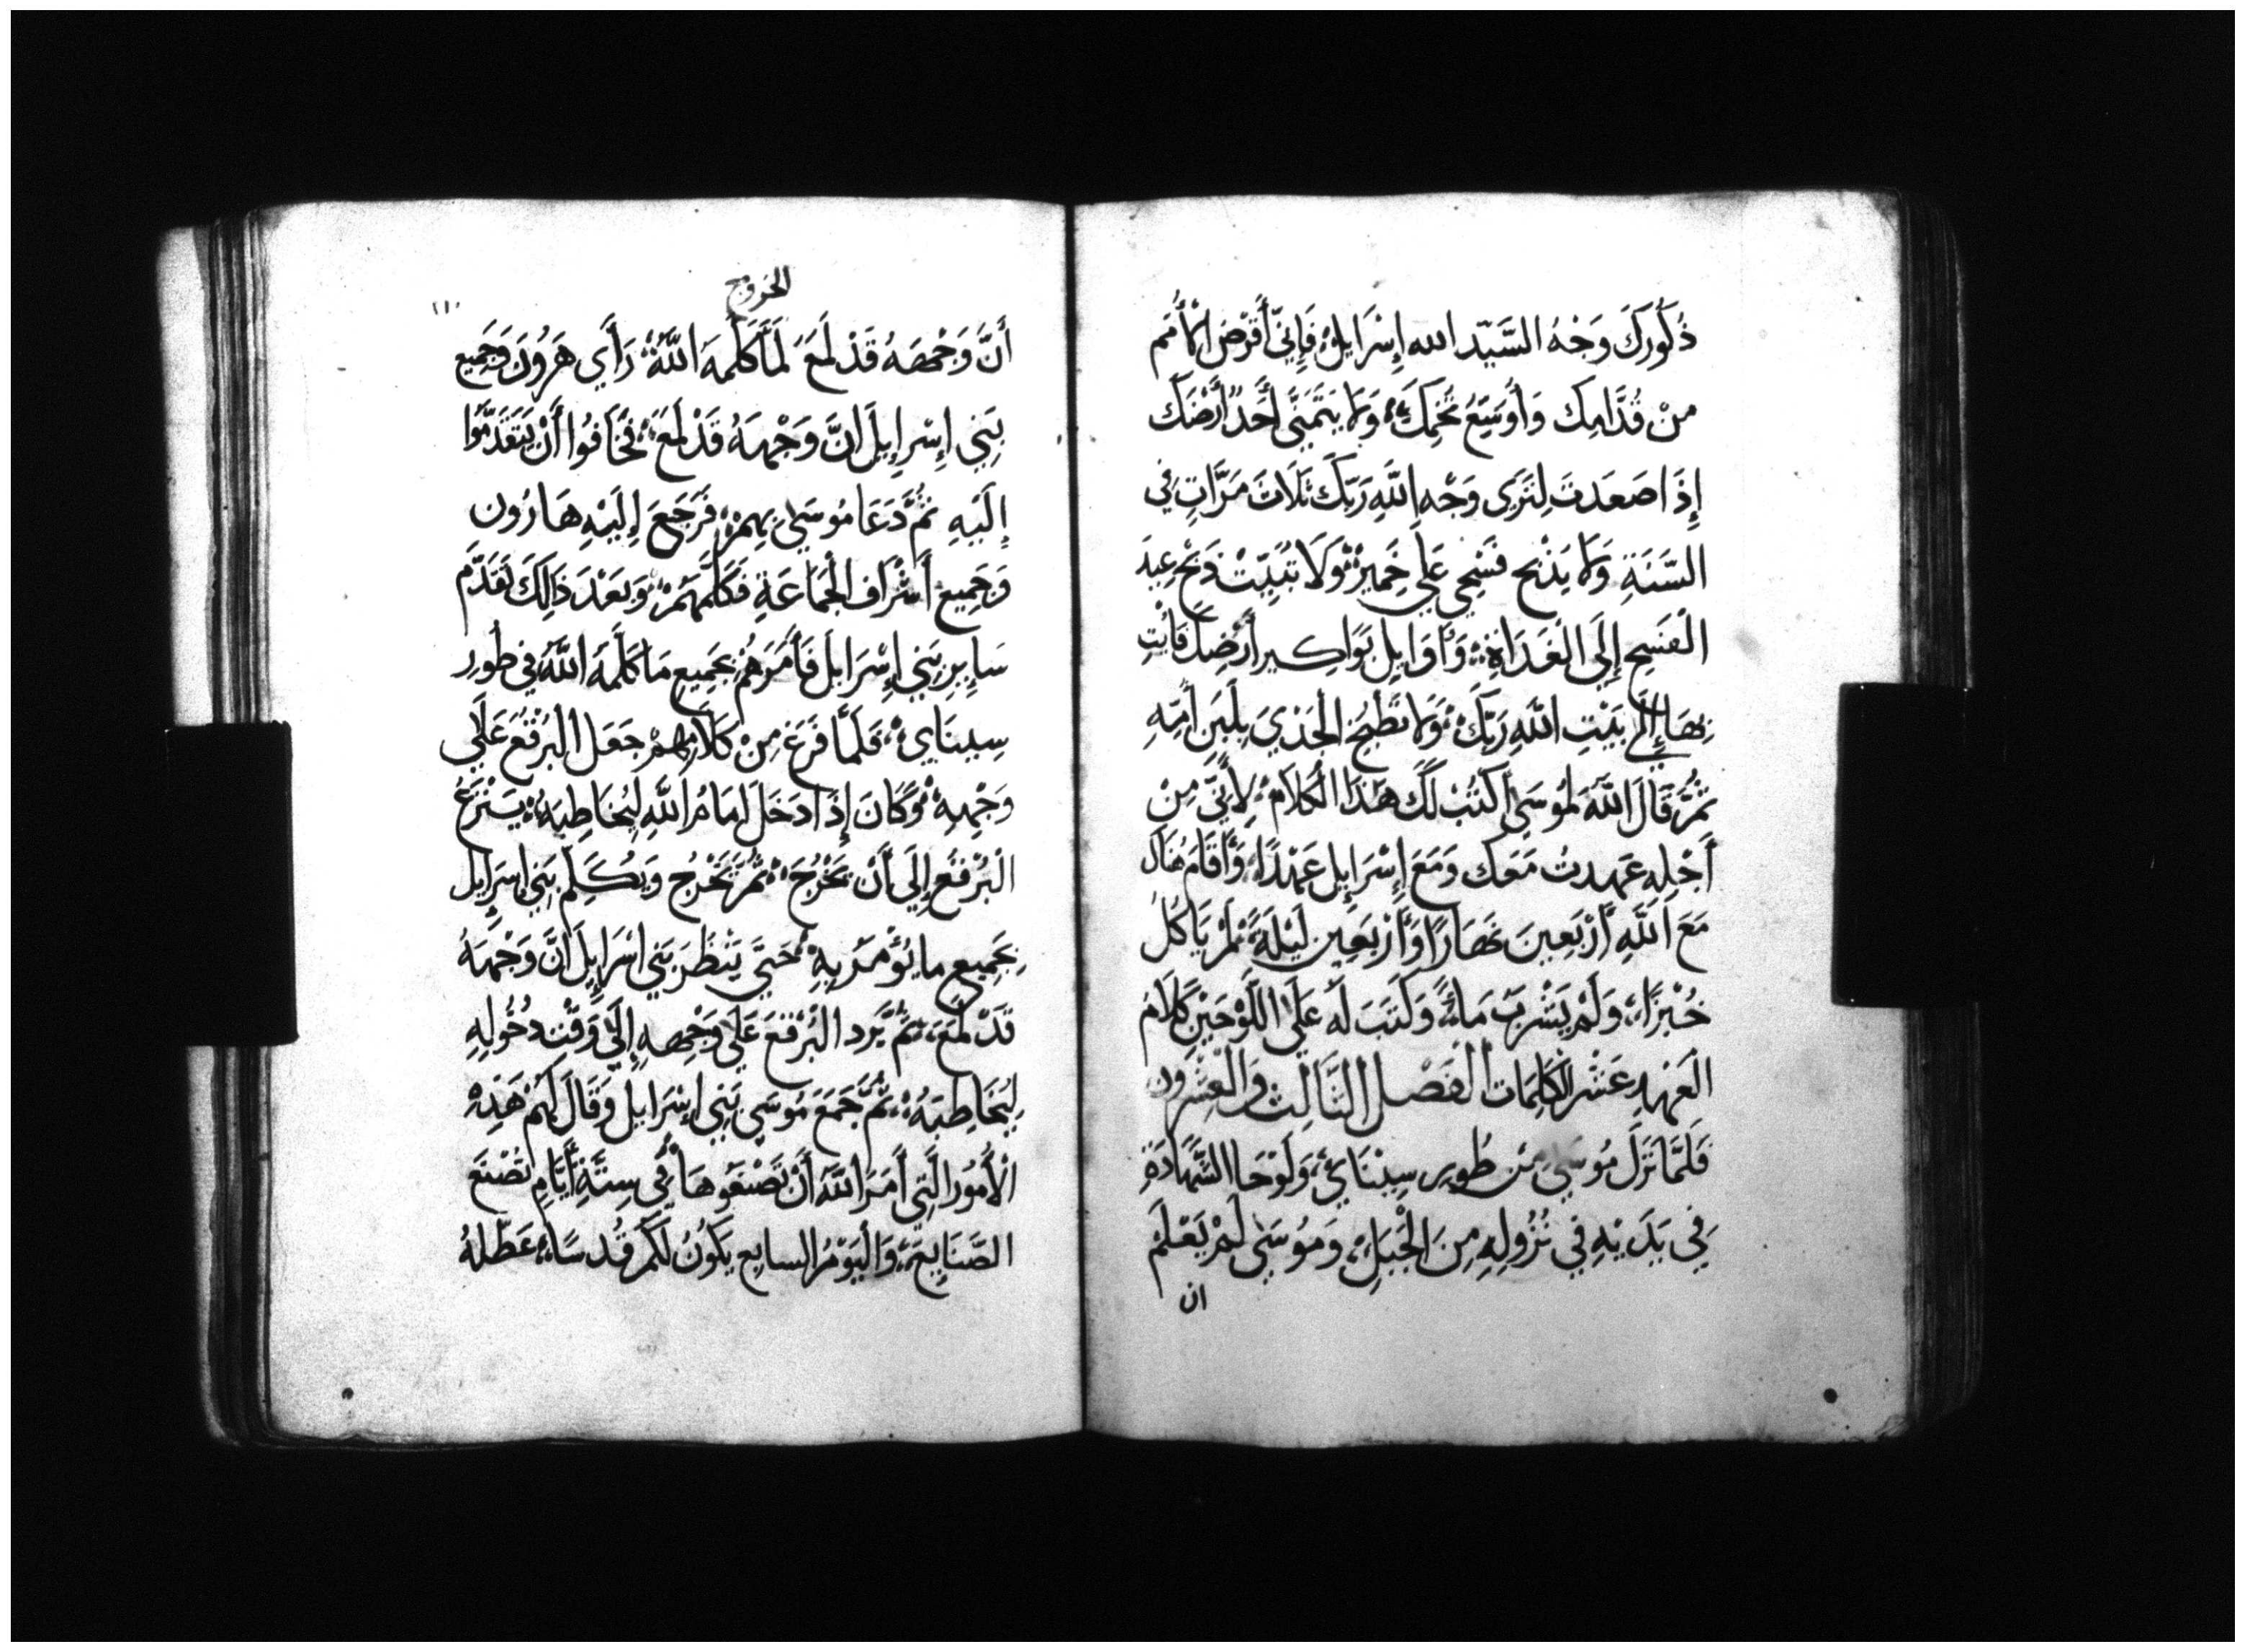 ذُكُورِكَ وَجْهُ السَّيّد الله إِسْرَايِلْ فَإِنِّي أَقْرِضُ الْأُمَم
مِنْ قُدَّامِكَ وَأُوَسِّعُ تُخُمِكَ وَلَا يَتَمَنَّى أَحَدٌ أَرْضَكَ
إِذَا صَعَدتَ لِتَرَى وَجْهِ اللَّهِ رَبِّكَ ثَلَاثَ مَرَّاتٍ فِي
السَّنَةِ وَلَا يَذْبَح فَسْحِي عَلَى خَمِيرْ وَلَا تُبَيِّتْ ذَبْحِ عِيدِ
الْفَسْحِ إِلَى الْغَدَاةِ وَأَوَايِلِ بَوَاكِير أَرْضِكَ فَأْتِ
بِهَا إِلَى بَيْتِ اللَّهِ رَبِّكَ وَلَا تَطْبُخ الْجَدْيَ بِلَبَنِ أُمِّهِ
ثُمَّ قَالَ اللَّهُ لِمُوسَى اكْتُبْ لَكَ هَذَا الْكَلَامَ لِأَنِّي مِنْ
أَجْلِهِ عَهِدتُ مَعَكَ وَمَعَ إِسْرَايِلِ عَهْدًا وَأَقَامَ هُنَاكَ
مَعَ اللَّهِ أَرْبَعِينَ نَهَارًا وَأَرْبَعِين لَيْلَةً لَمْ يَاكُلُ
خُبْزًا وَلَمْ يَشْرَبْ مَاءً وَكَتَبَ لَهُ عَلَى اللَّوْحَيْنِ كَلَامَ
الْعَهْدِ عَشْر الْكَلِمَات الْفَصْل الثَّالِث وَالْعِشْرُون
فَلَمَّا نَزَلَ مُوسَى مِنْ طُورِ سِيْنَايَ وَلَوْحَا الشَّهَادَةِ
فِي يَدَيْهِ فِي نُزُولِهِ مِنَ الْجَبَلِ وَمُوسَى لَمْ يَعْلَمْ
ان
الخروج
١١٠
أَنَّ وَجْهَهُ قَدْ لَمَعَ لَمَّا كَلَّمَهُ اللَّهُ رَأَي هَرُونَ وَجَمِيع
بَنِي إِسْرِايِلَ انَّ وَجْهَهُ قَدْ لَمَعَ فَخَافُوا أَنْ يَتَقَدَّمُوا
إِلَيْهِ ثُمَّ دَعَا مُوسَى بِهِمْ فَرَجَعَ إِلَيْهِ هَارُون
وَجَمِيع أَشْرَاف الْجَمَاعَةِ فَكَلَّمَهُمْ وَبَعْدَ ذَالِكَ تَقَدَّم
سَايِرِ بَنِي إِسْرَايلَ فَأَمَرَهُمْ بِجَمِيعِ مَا كَلَّمَهُ اللَّهُ فِي طُورِ
سِينَايَ فَلَمَّا فَرَغَ مِنْ كَلَامِهِمْ جَعَل الْبُرْقُعَ عَلَى
وَجْهِهِ وَكَانَ إِذَا دَخَلَ امَامُ اللَّهِ لِيُخَاطِبَهُ يَنْزَعُ
الْبُرْقُع إِلَى أَنْ يَخْرُجَ ثُمَّ يَخْرُج وَيُكَلِّمِ بَنِي اسْرَايِلَ
بِجَمِيعِ مَا يُؤْمَرُ بِهِ حَتَّى يَنْظُر بَنِي اسْرَايِلَ انَّ وَجْهَهُ
قَدْ لَمَعَ ثُمَّ يَرد الْبُرْقعَ عَلَى وَجْهِهِ إِلَى وَقْتِ دُخُولِهِ
لِيُخَاطِبَهُ ثُمَّ جَمَعَ مُوسَى بَنِي اسْرَايل وَقَالَ لَهُمْ هَذِهِ
الْأُمُورُ الَّتِي أَمَرَ اللَّهُ أَنْ تَصْنَعُوهَا فِي سِتَّةِ أَيَّامٍ تُصْنَع
الصَّنَايِعَ وَالْيَوْمُ السابِع يَكُونُ لَكُمْ قُدسًا عَطْلهُ